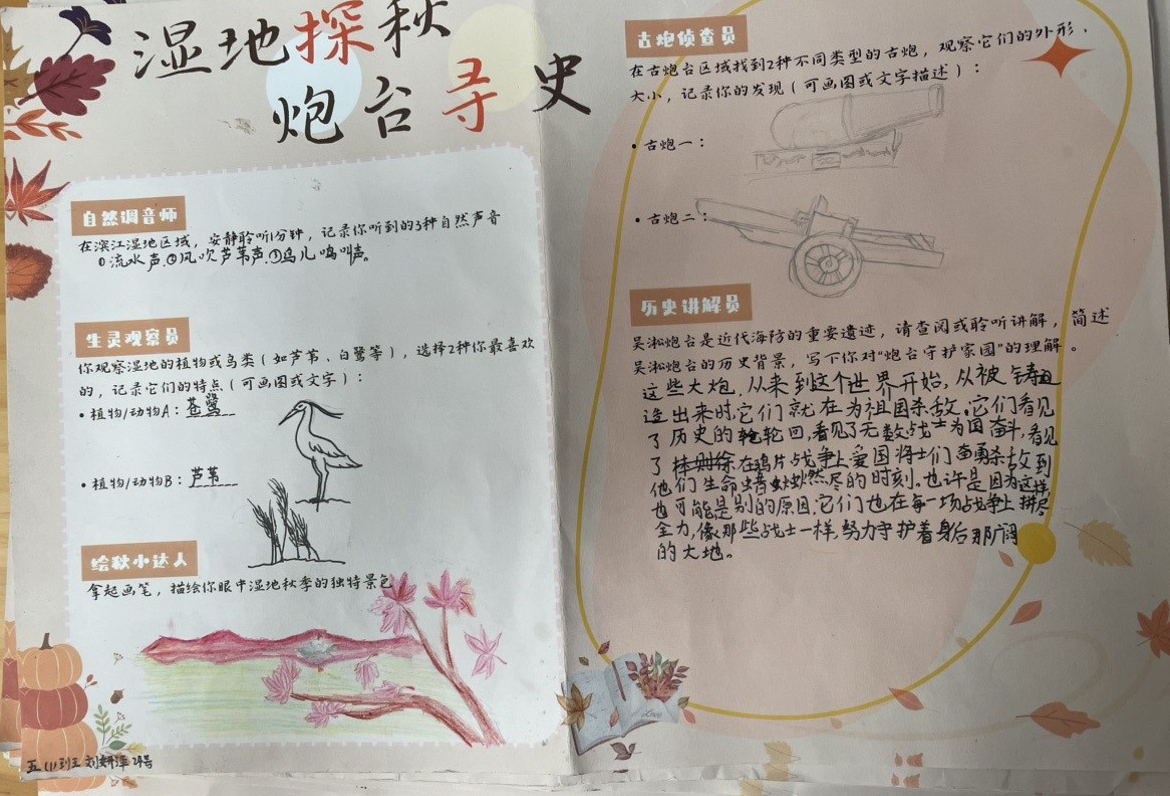 湿地探秋
炮台寻史
自然调音师
在滨江湿地区域，安静聆听1分钟，记录你听到的3种自然声音
①流水声.②风吹芦苇声.③鸟儿鸣叫声。
生灵观察员
你观察湿地的植物或鸟类（如芦苇、白鹭等），选择2种你最喜欢
的，记录它们的特点（可画图或文字）：
• 植物/动物A：苍鹭
• 植物/动物B：芦苇
绘秋小达人
拿起画笔，描绘你眼中湿地秋季的独特景色
五(1)班 刘妍 24号
古炮侦查员
在古炮台区域找到2种不同类型的古炮，观察它们的外形、
大小，记录你的发现（可画图或文字描述）：
• 古炮一：
• 古炮二：
历史讲解员
吴淞炮台是近代海防的重要遗迹，请查阅或聆听讲解，简述
吴淞炮台的历史背景，写下你对“炮台守护家园”的理解。
这些大炮，从来到这个世界开始，从被铸
造出来时，它们就在为祖国杀敌，它们看见
了历史的轮回，看见了无数战士为国奋斗，看见
了林则徐在鸦片战争上爱国将士们奋勇杀敌到
他们生命蜡烛燃尽的时刻。也许是因为这样，
也可能是别的原因，它们也在每一场战争上拼尽
全力，像那些战士一样，努力守护着身后那广阔
的大地。
Love